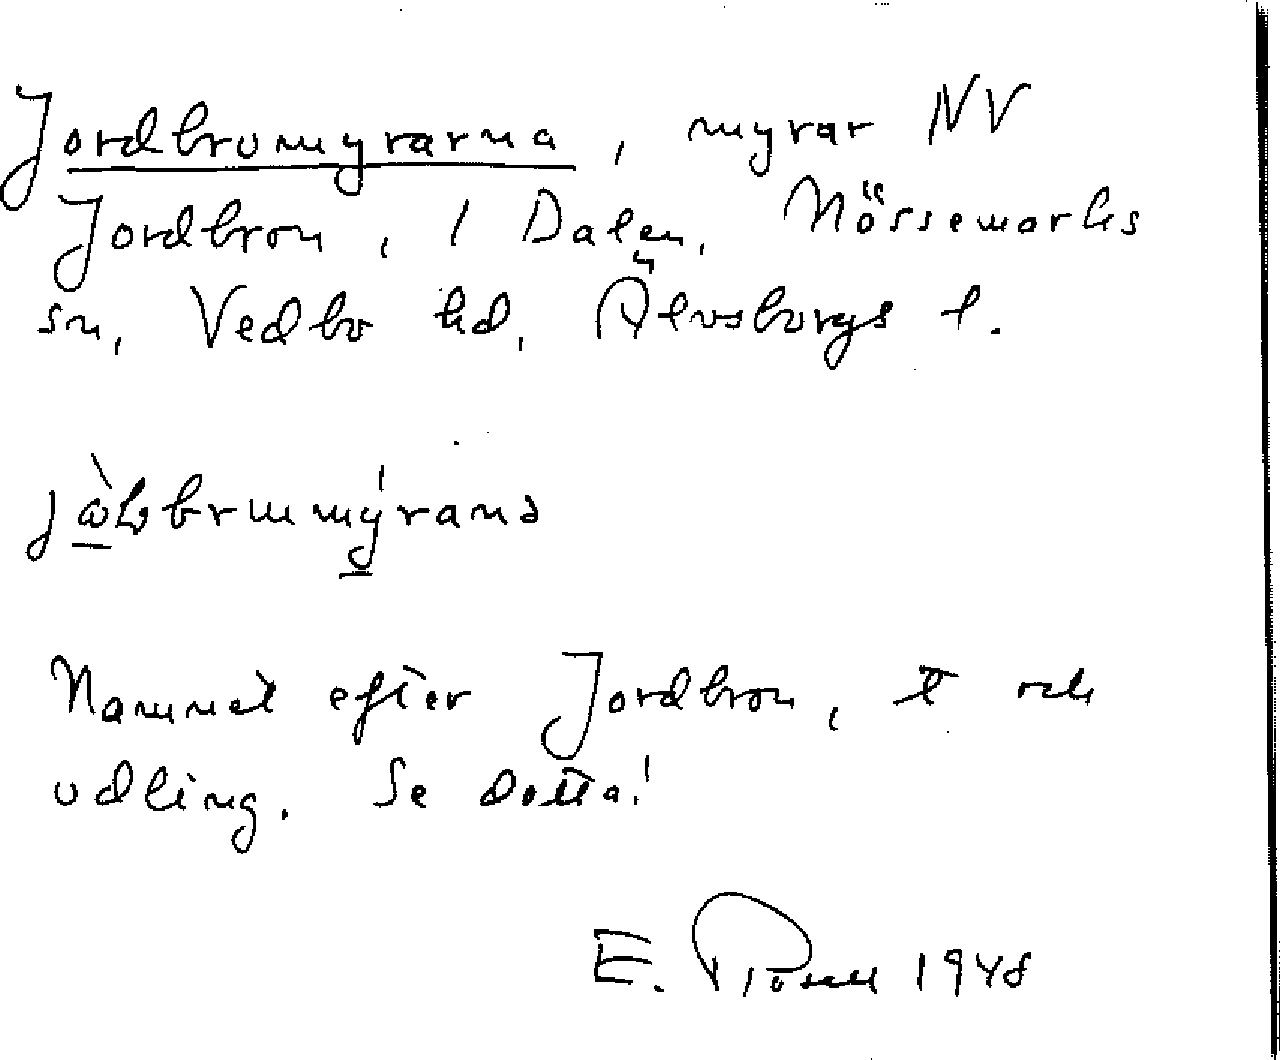 Jordbromyrarna, myrar NV
Jordbron, 1 Dalen, Nössemarks
sn, Vedbo hd, Älvsborgs l.
Namnet efter Jordbron, t och
odling. Se detta!
E. 1948